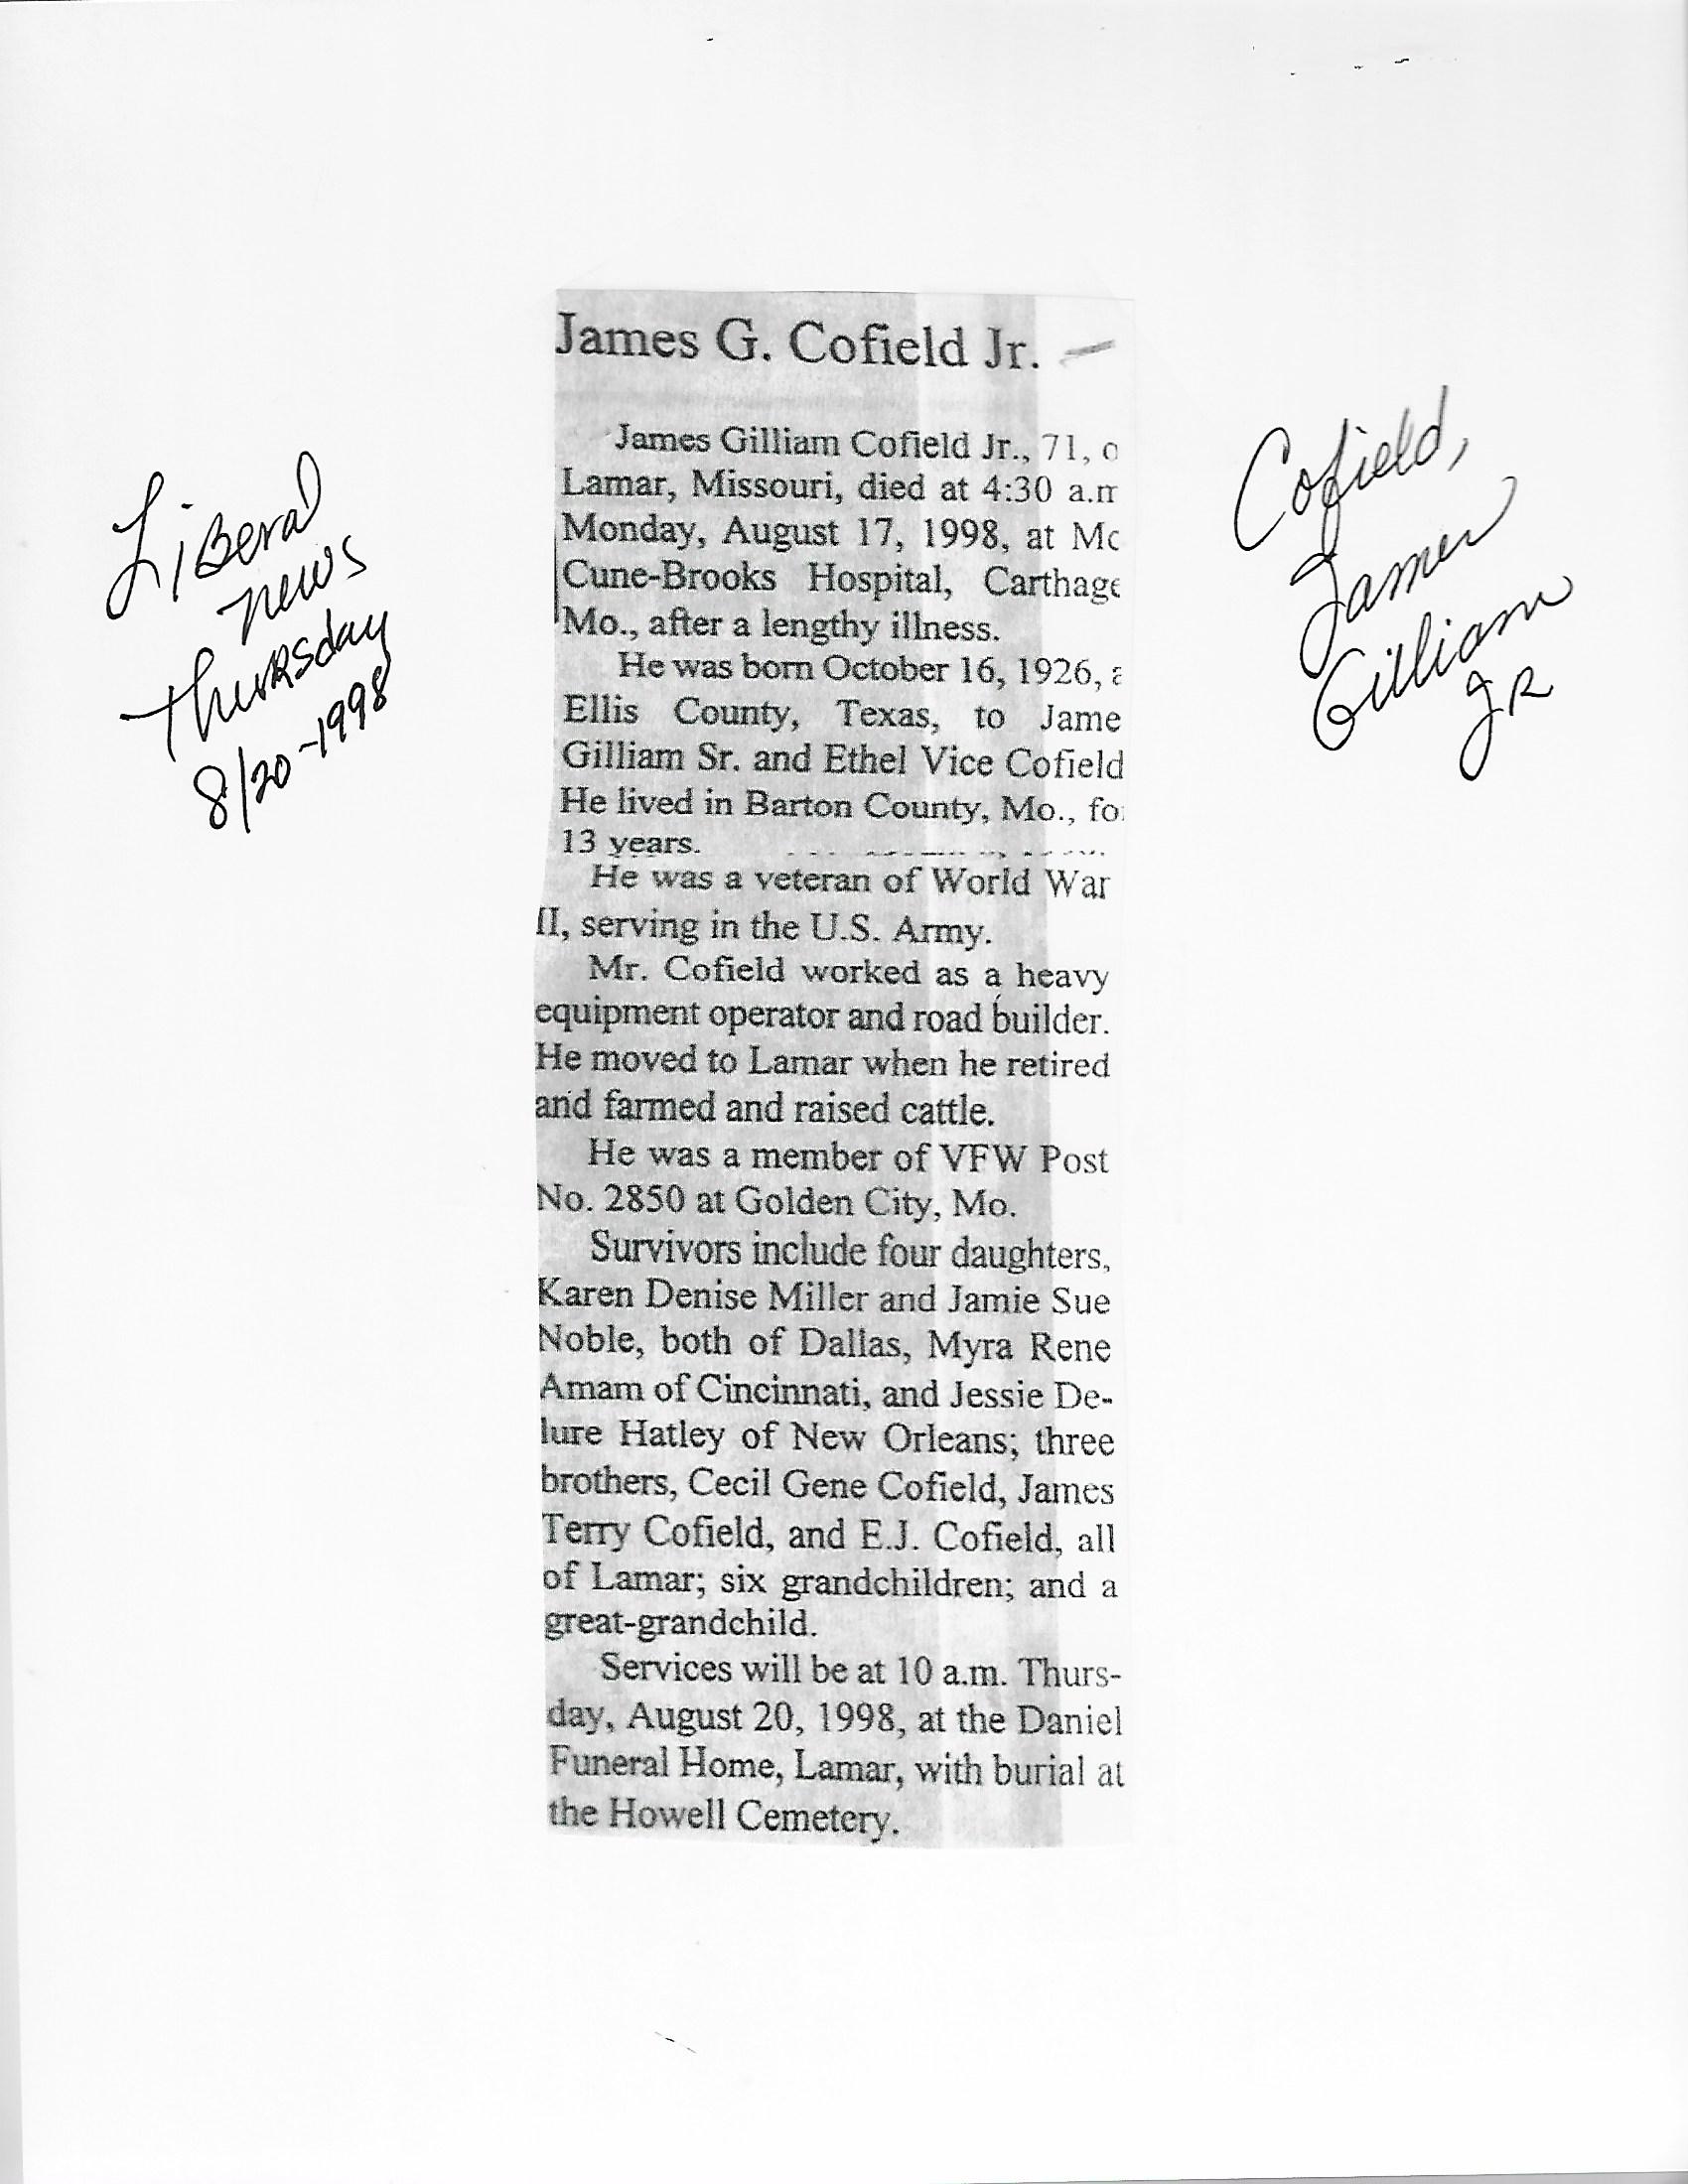 James G. Cofield Jr.
James Gilliam Cofield Jr., 71, o
Lamar, Missouri, died at 4:30 a.m
Monday, August 17, 1998, at Mc
Cune-Brooks Hospital, Carthage
Mo., after a lengthy illness.
He was born October 16, 1926, a
Ellis County, Texas, to Jame
Gilliam Sr. and Ethel Vice Cofield
He lived in Barton County, Mo., for
13 years.
He was a veteran of World War
II, serving in the U.S. Army.
Mr. Cofield worked as a heavy
equipment operator and road builder.
He moved to Lamar when he retired
and farmed and raised cattle.
He was a member of VFW Post
No. 2850 at Golden City, Mo.
Survivors include four daughters,
Karen Denise Miller and Jamie Sue
Noble, both of Dallas, Myra Rene
Amam of Cincinnati, and Jessie De-
lure Hatley of New Orleans; three
brothers, Cecil Gene Cofield, James
Terry Cofield, and E.J. Cofield, all
of Lamar; six grandchildren; and a
great-grandchild.
Services will be at 10 a.m. Thurs-
day, August 20, 1998, at the Daniel
Funeral Home, Lamar, with burial at
the Howell Cemetery.
Liberal
news
Thursday
8/20-1998
Cofield,
James
Gilliam
JR